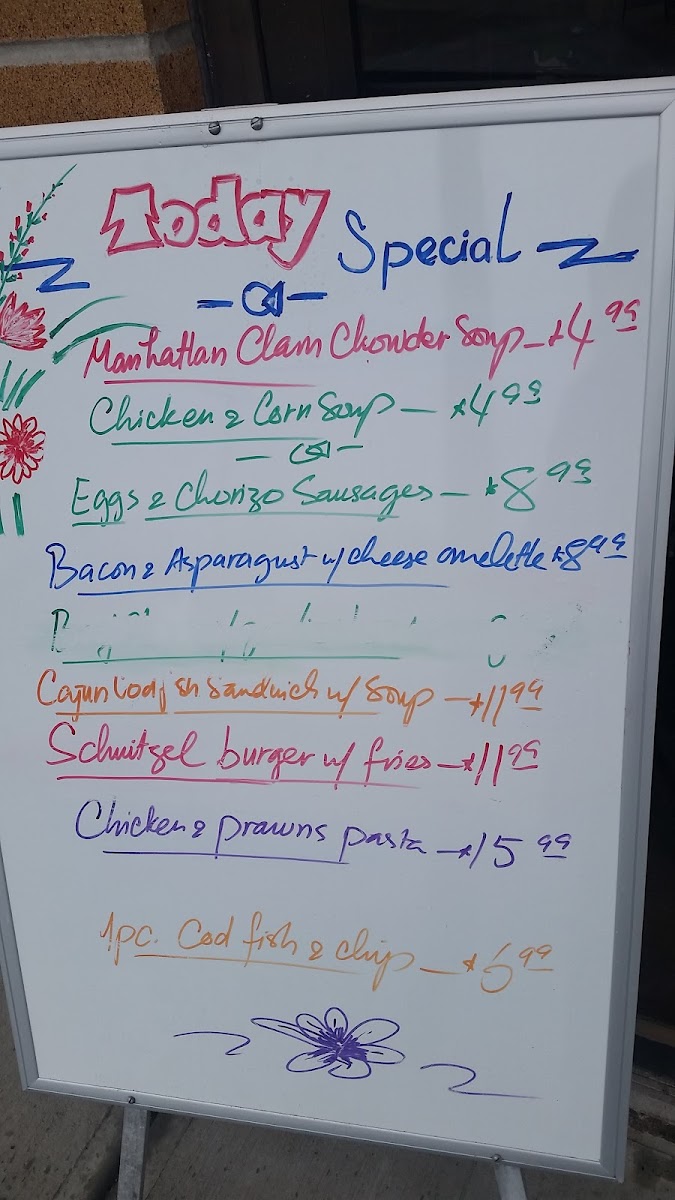 Today Special
Manhattan Clam Chowder Soup - $4.99
Chicken & Corn Soup - $4.99
Eggs & Chorizo Sausages - $8.99
Bacon & Asparagust w/ cheese omelette $8.99
Cajun Codfish Sandwich w/ Soup - $11.99
Schnitzel burger w/ fries - $11.99
Chicken & prawns pasta - $15.99
1pc. Cod fish & chip -